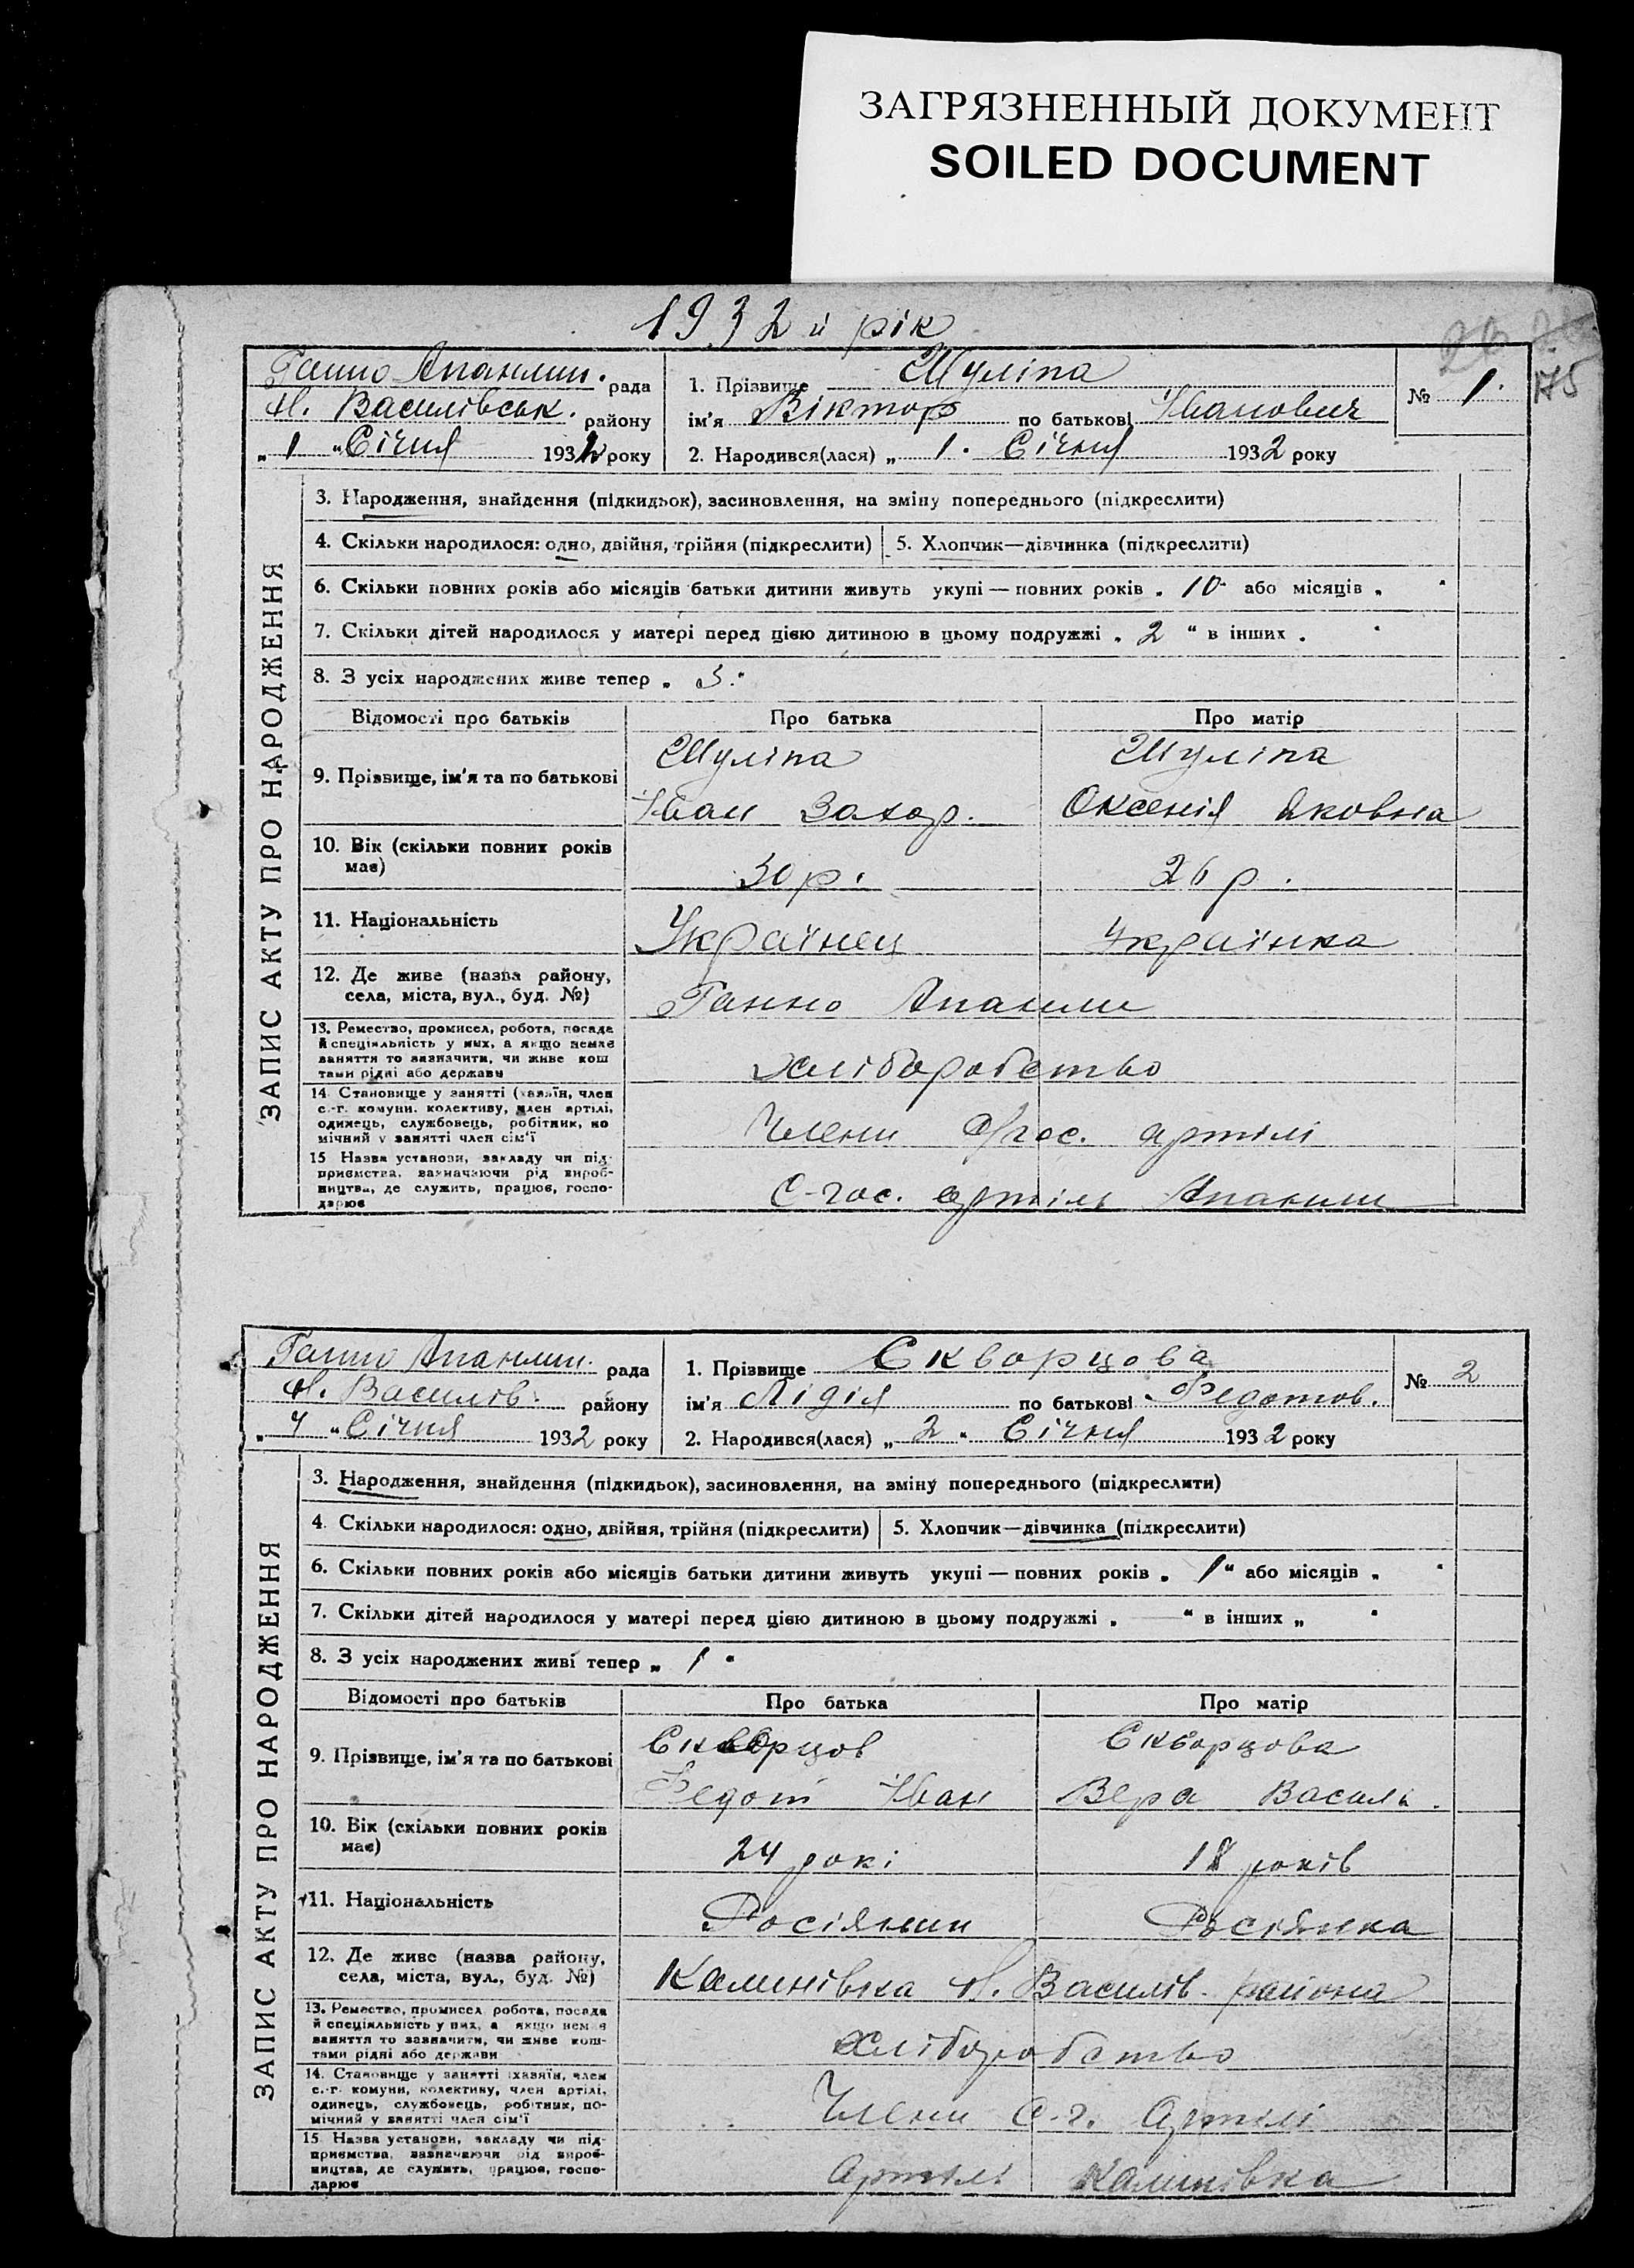 ЗАГРЯЗНЕННЫЙ ДОКУМЕНТ
SOILED DOCUMENT
1932 й рік
175
ЗАПИС АКТУ ПРО НАРОДЖЕННЯ
Ганно Апанлин. рада
Н. Василівськ. району
„ 1 " Січня 1932 року
1. Прізвище Шуліпа
ім'я Віктор по батькові Іванович
2. Народився(лася) „ 1. Січня 1932 року
№ 1.
3. Народження, знайдення (підкидьок), засиновлення, на зміну попереднього (підкреслити)
4. Скільки народилося: одно, двійня, трійня (підкреслити) 5. Хлопчик—дівчинка (підкреслити)
6. Скільки повних років або місяців батьки дитини живуть укупі — повних років „ 10 " або місяців „ "
7. Скільки дітей народилося у матері перед цією дитиною в цьому подружжі „ 2 " в інших „ "
8. З усіх народжених живе тепер „ 3 "
Відомості про батьків Про батька Про матір
9. Прізвище, ім'я та по батькові Шуліпа Шуліпа
Іван Захар. Оксенія Яковна
10. Вік (скільки повних років має) 30 р. 26 р.
11. Національність Українец Українка
12. Де живе (назва району,
села, міста, вул., буд. №) Ганно
13. Ремество, промисел, робота, посада
й спеціяльність у них, а якщо немає
заняття то зазначити, чи живе кош
тами рідні або держави хліборобство
14. Становище у занятті (хазяїн, член
с.-г. комуни, колективу, член артілі,
одинець, службовець, робітник, по
мічний у занятті член сім'ї Члени с/гос. артілі
15. Назва установи, закладу чи під-
приємства, зазначаючи рід вироб-
ництва, де служить, працює, госпо-
дарює С-гос. артіль
ЗАПИС АКТУ ПРО НАРОДЖЕННЯ
Ганно Апанлин. рада
Н. Василів. району
„ 7 " Січня 1932 року
1. Прізвище Скворцова
ім'я Лідія по батькові Федотов.
2. Народився(лася) „ 2 " Січня 1932 року
№ 2
3. Народження, знайдення (підкидьок), засиновлення, на зміну попереднього (підкреслити)
4. Скільки народилося: одно, двійня, трійня (підкреслити) 5. Хлопчик—дівчинка (підкреслити)
6. Скільки повних років або місяців батьки дитини живуть укупі — повних років „ 1 " або місяців „ "
7. Скільки дітей народилося у матері перед цією дитиною в цьому подружжі „ " в інших „ "
8. З усіх народжених живі тепер „ 1 "
Відомості про батьків Про батька Про матір
9. Прізвище, ім'я та по батькові Скворцов Скворцова
Федот Іван Вера Василь.
10. Вік (скільки повних років має) 24 рокі 18 років
11. Національність Росіянин Росіянка
12. Де живе (назва району,
села, міста, вул., буд. №) Калинівка Н. Василів. района
13. Ремество, промисел, робота, посада
й спеціяльність у них, а якщо немає
заняття то зазначити, чи живе кош-
тами рідні або держави хліборобство
14. Становище у занятті (хазяїн, член
с.-г. комуни, колективу, член артілі,
одинець, службовець, робітник, по-
мічний у занятті член сім'ї Члени с.-г. Артілі
15. Назва установи, закладу чи під-
приємства, зазначаючи рід вироб-
ництва, де служить, працює, госпо-
дарює Артілі Калинівка